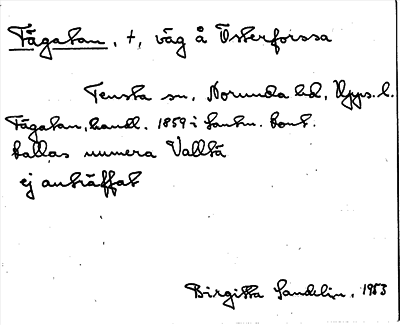 Tägatan, +, väg å Österforssa
Tensta sn, Norunda hd, Upps. l.
Tägatan, handl. 1859 i lantm. kont.
kallas numera Valltå
ej anträffat
Birgitta Sandelin, 1953